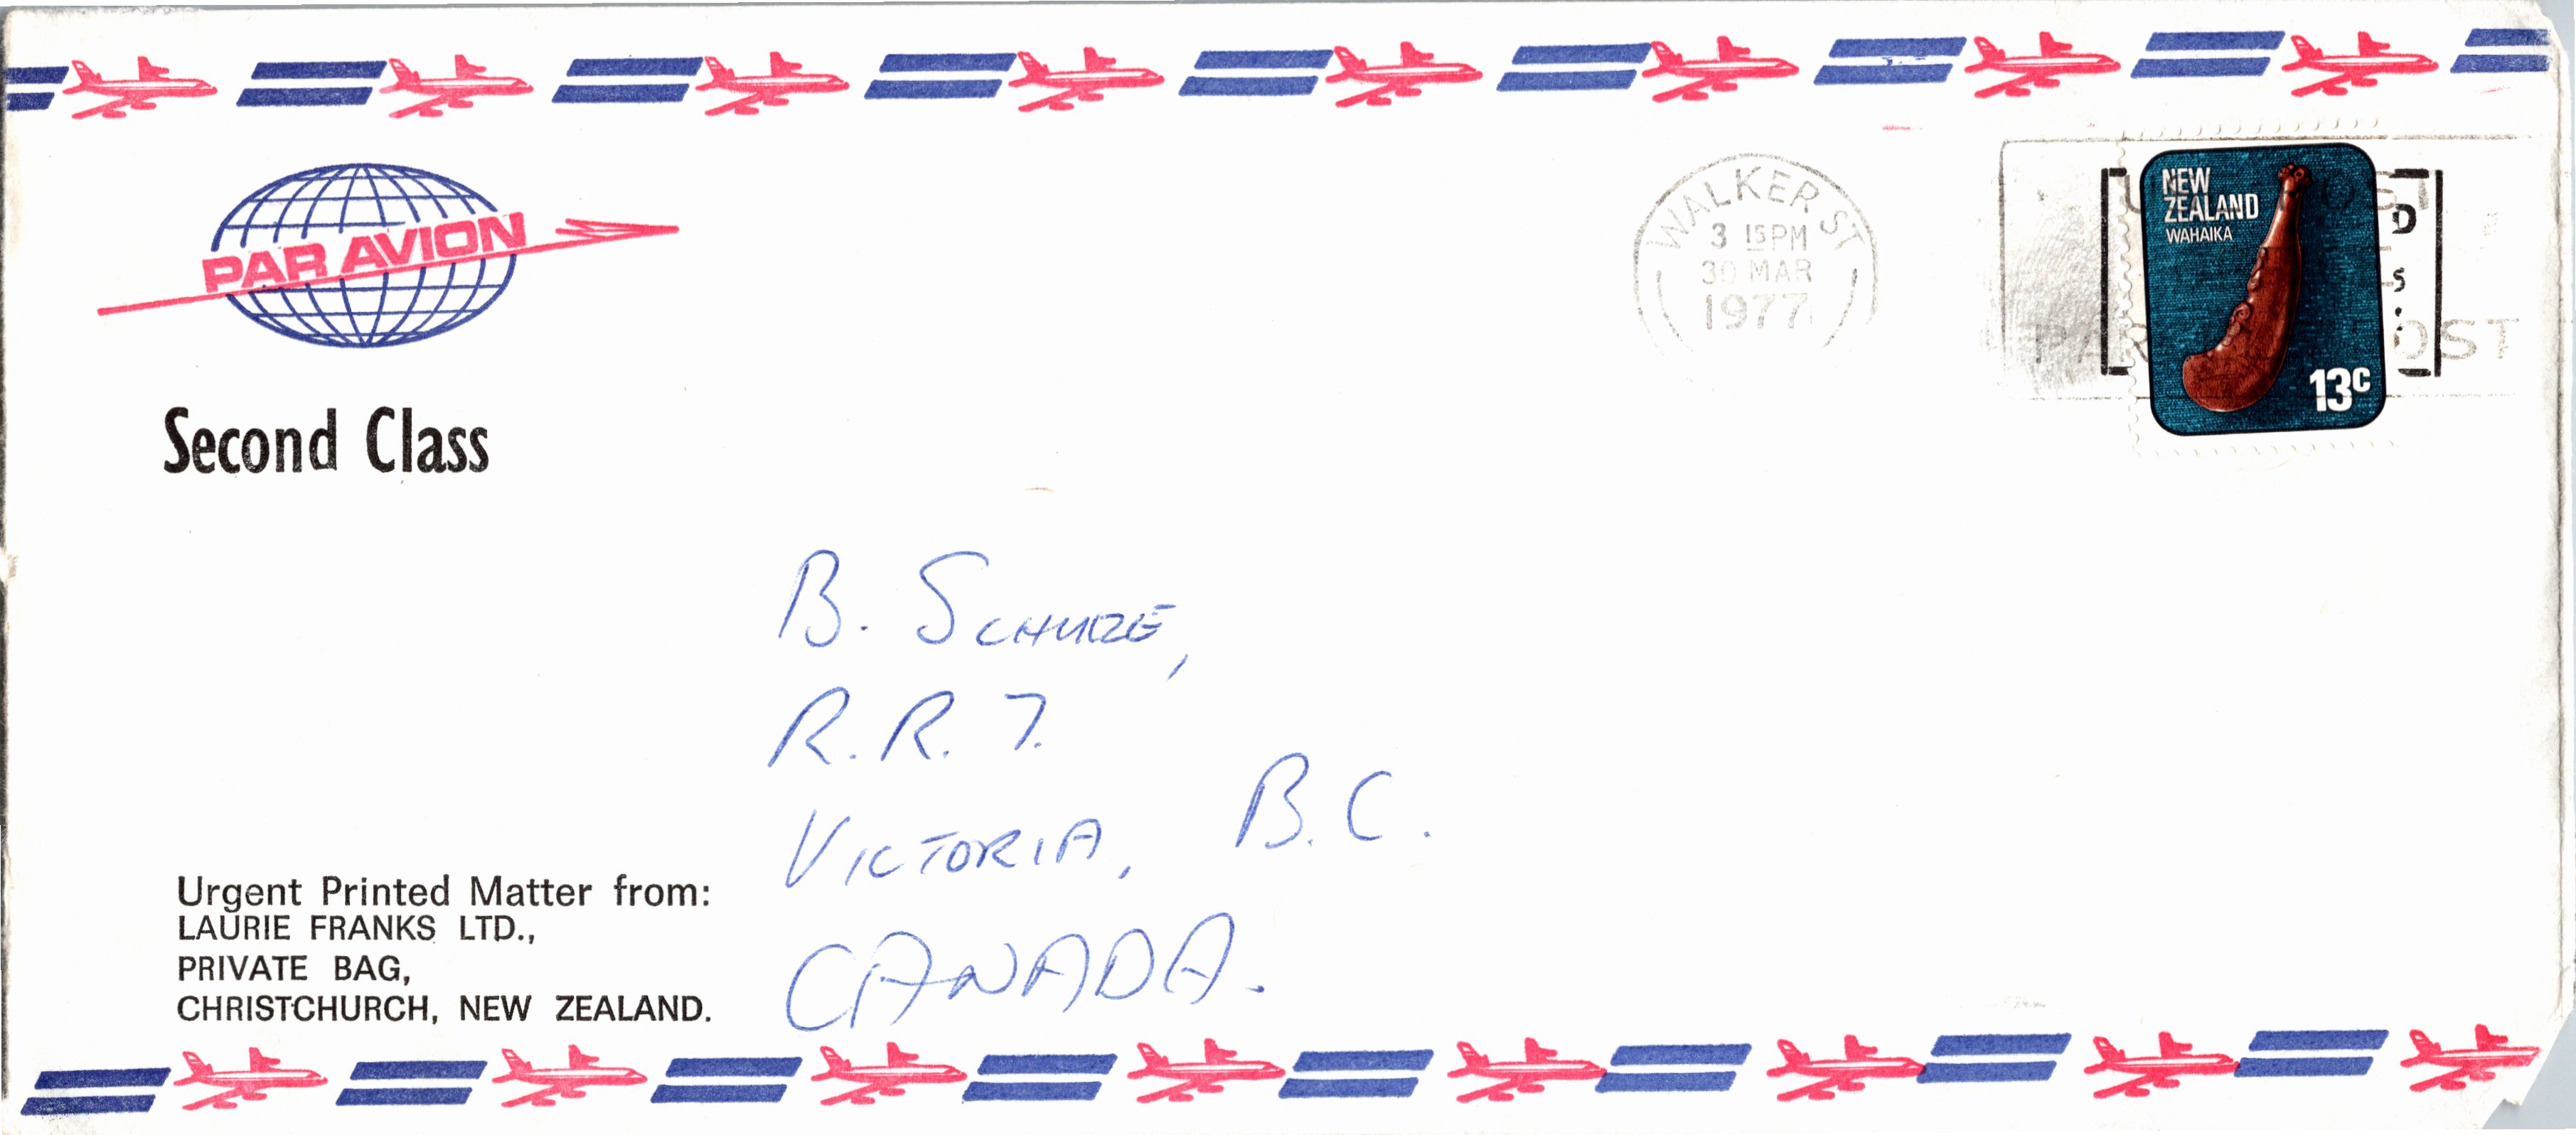 PAR AVION
Second Class
WALKER ST
3 15 PM
30 MAR
1977
NEW
ZEALAND
WAHAIKA
13c
D
S
OST
B. SCHULZE,
R.R. 7.
VICTORIA, B.C.
CANADA.
Urgent Printed Matter from:
LAURIE FRANKS LTD.,
PRIVATE BAG,
CHRISTCHURCH, NEW ZEALAND.